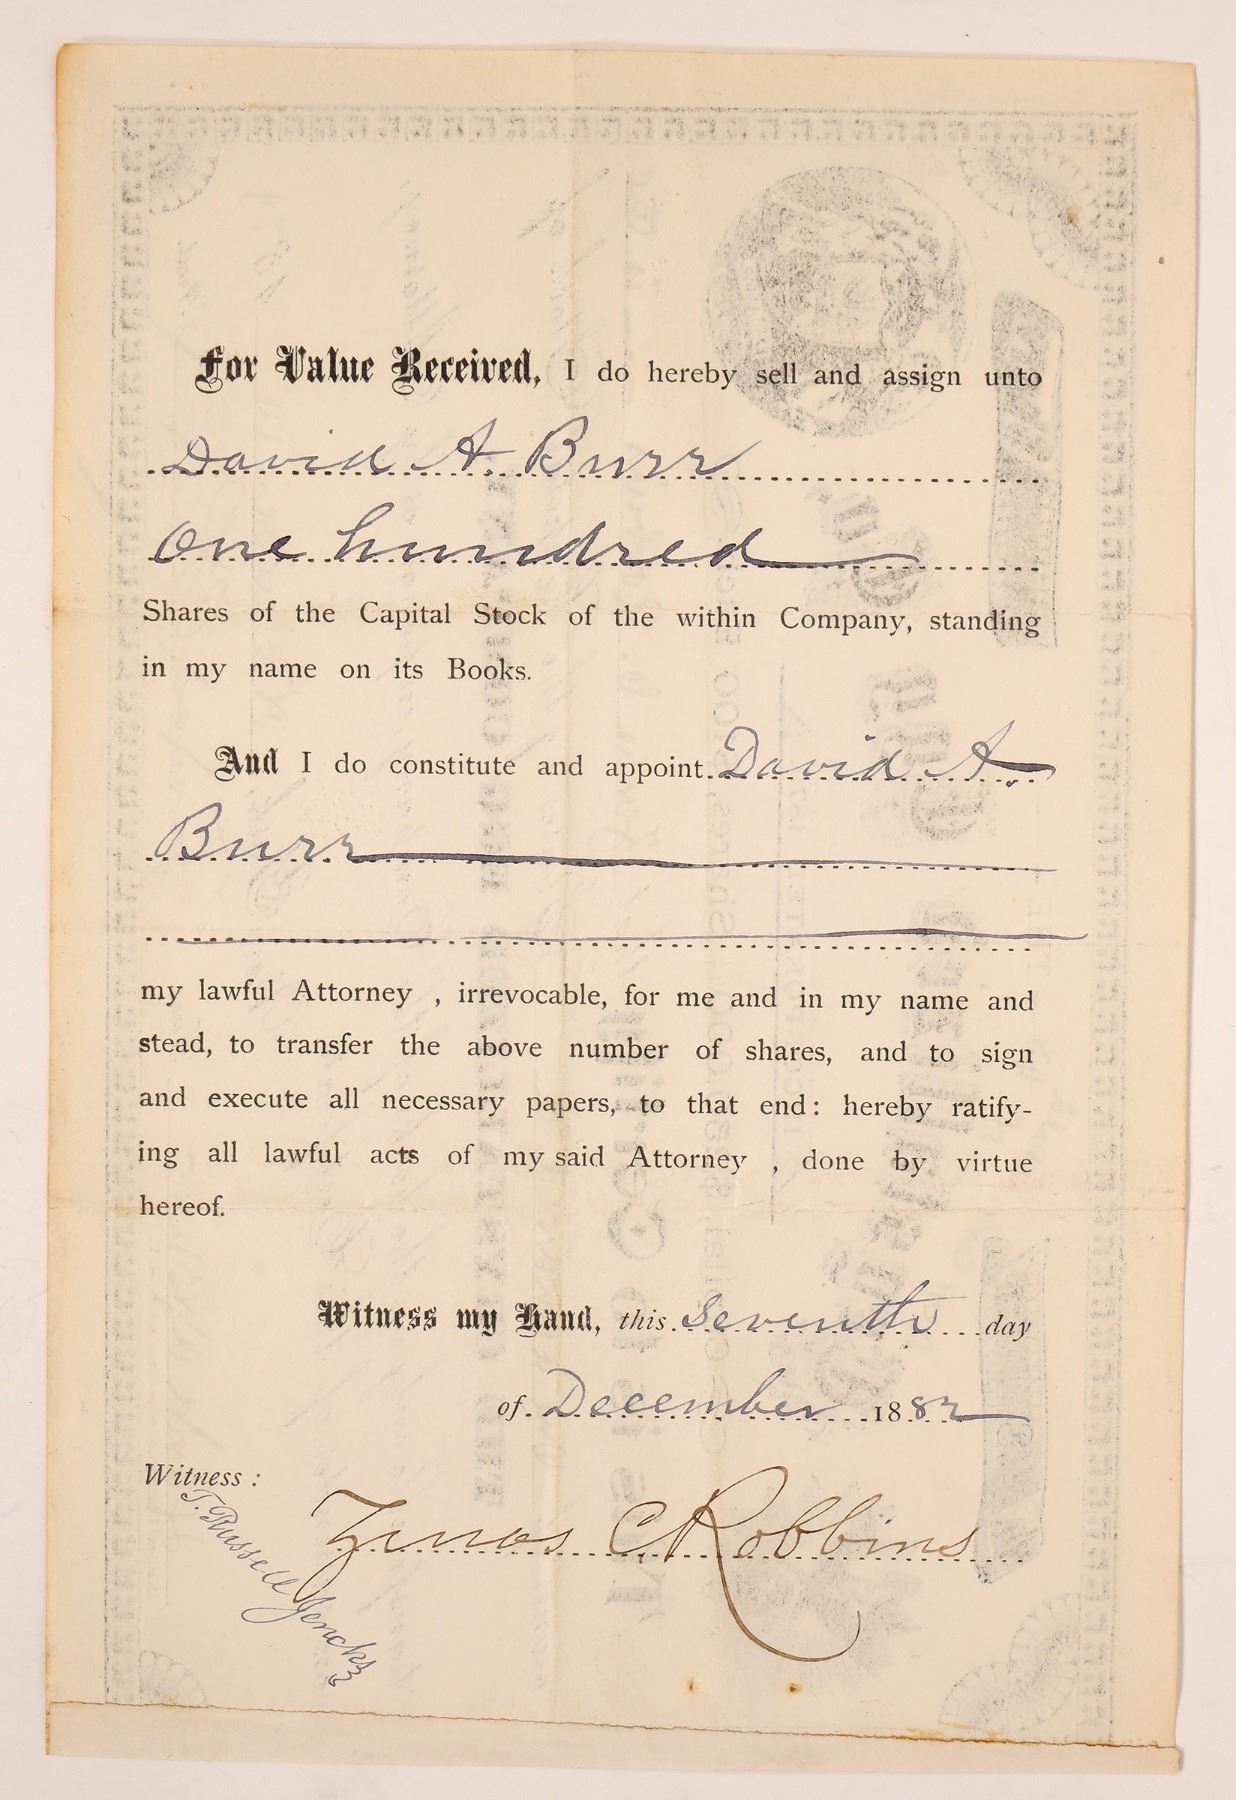 For Value Received, I do hereby sell and assign unto
David A Burr
One hundred
Shares of the Capital Stock of the within Company, standing
in my name on its Books.
And I do constitute and appoint David A.
Burr
my lawful Attorney , irrevocable, for me and in my name and
stead, to transfer the above number of shares, and to sign
and execute all necessary papers, to that end: hereby ratify-
ing all lawful acts of my said Attorney , done by virtue
hereof.
Witness my Hand, this seventh day
of December 1882
Witness:
T. Russell Jencks
Zenos C Robbins